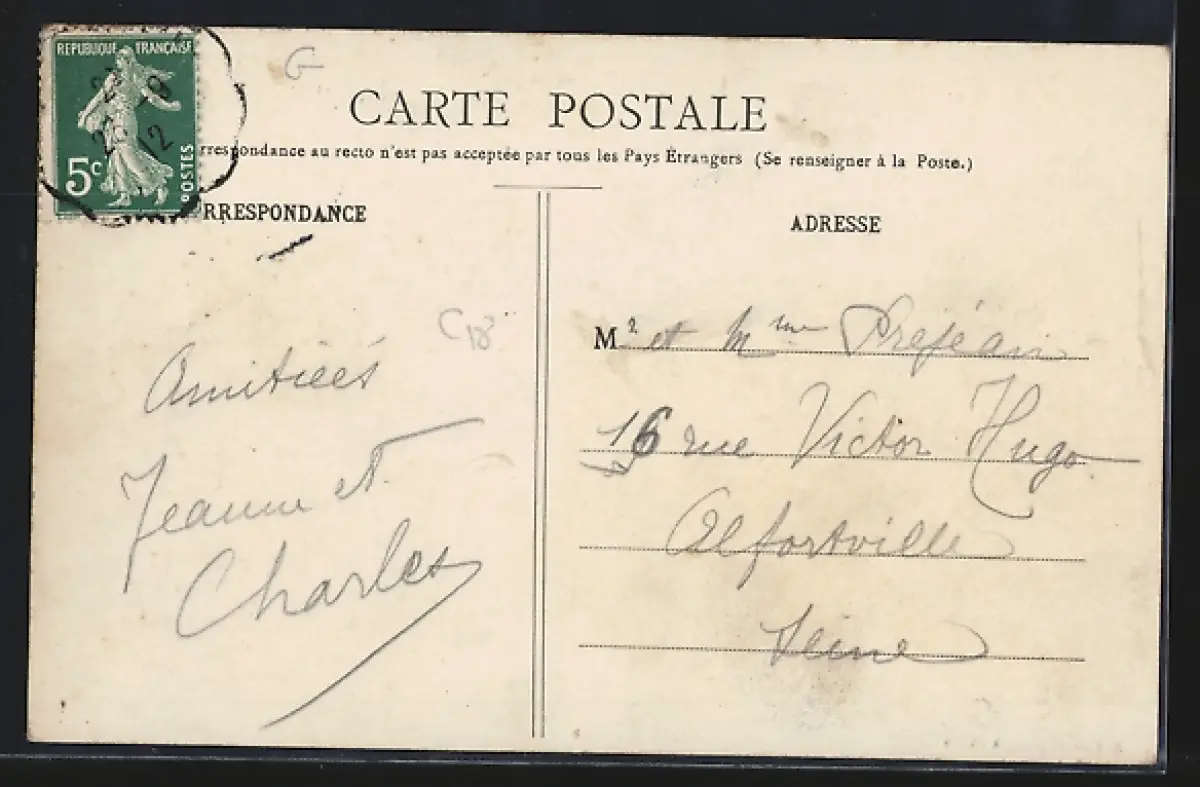 REPUBLIQUE FRANÇAISE
5c
POSTES
G
CARTE POSTALE
rrespondance au recto n'est pas acceptée par tous les Pays Étrangers (Se renseigner à la Poste.)
RRESPONDANCE
Amitiées
Jeanne et
Charles
ADRESSE
Mr et Mme Préjean
16 rue Victor Hugo
Alfortville
Seine